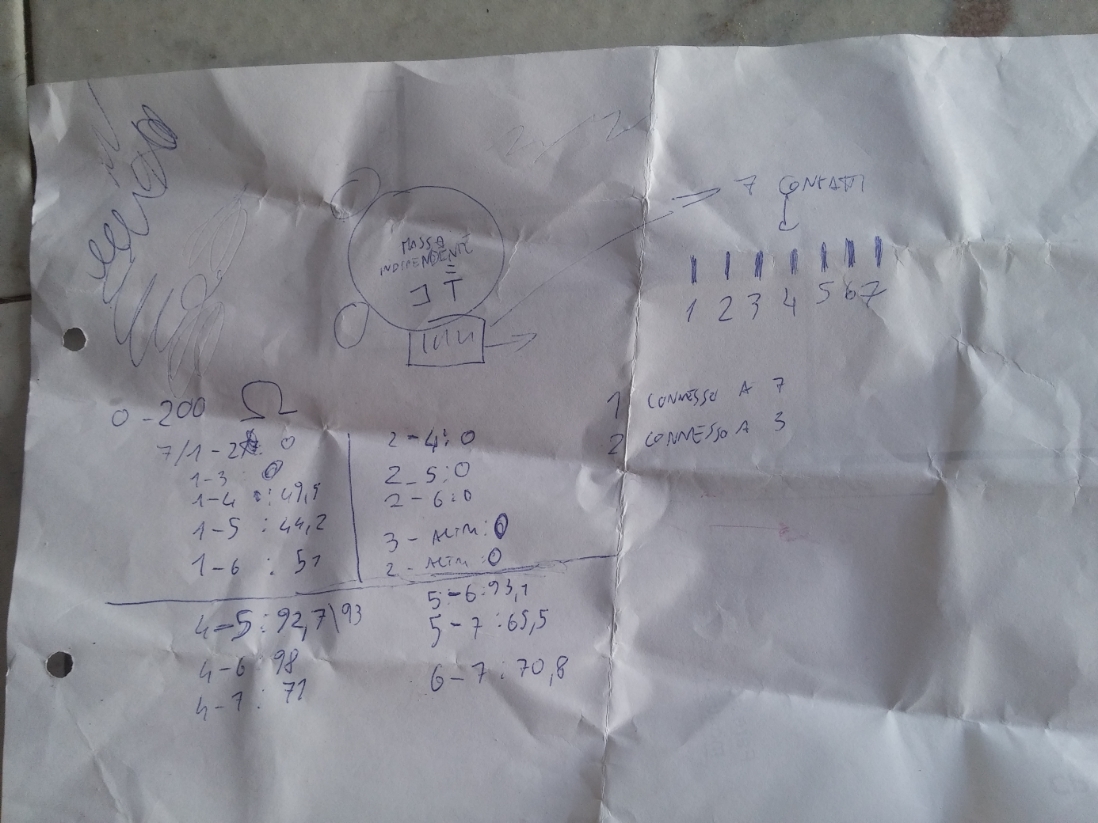 7 CONTATTI
MASSA
INDIPENDENTE
1 2 3 4 5 6 7
1 CONNESSO A 7
2 CONNESSO A 3
0-200 Ω
7/1-2: 0
1-3 : 0
1-4 : 49,5
1-5 : 44,2
1-6 : 51
2-4: 0
2-5: 0
2-6: 0
3- ALTRI: 0
2- ALTRI: 0
4-5: 92,7\93
4-6: 98
4-7: 71
5-6: 93,1
5-7: 65,5
6-7: 70,8